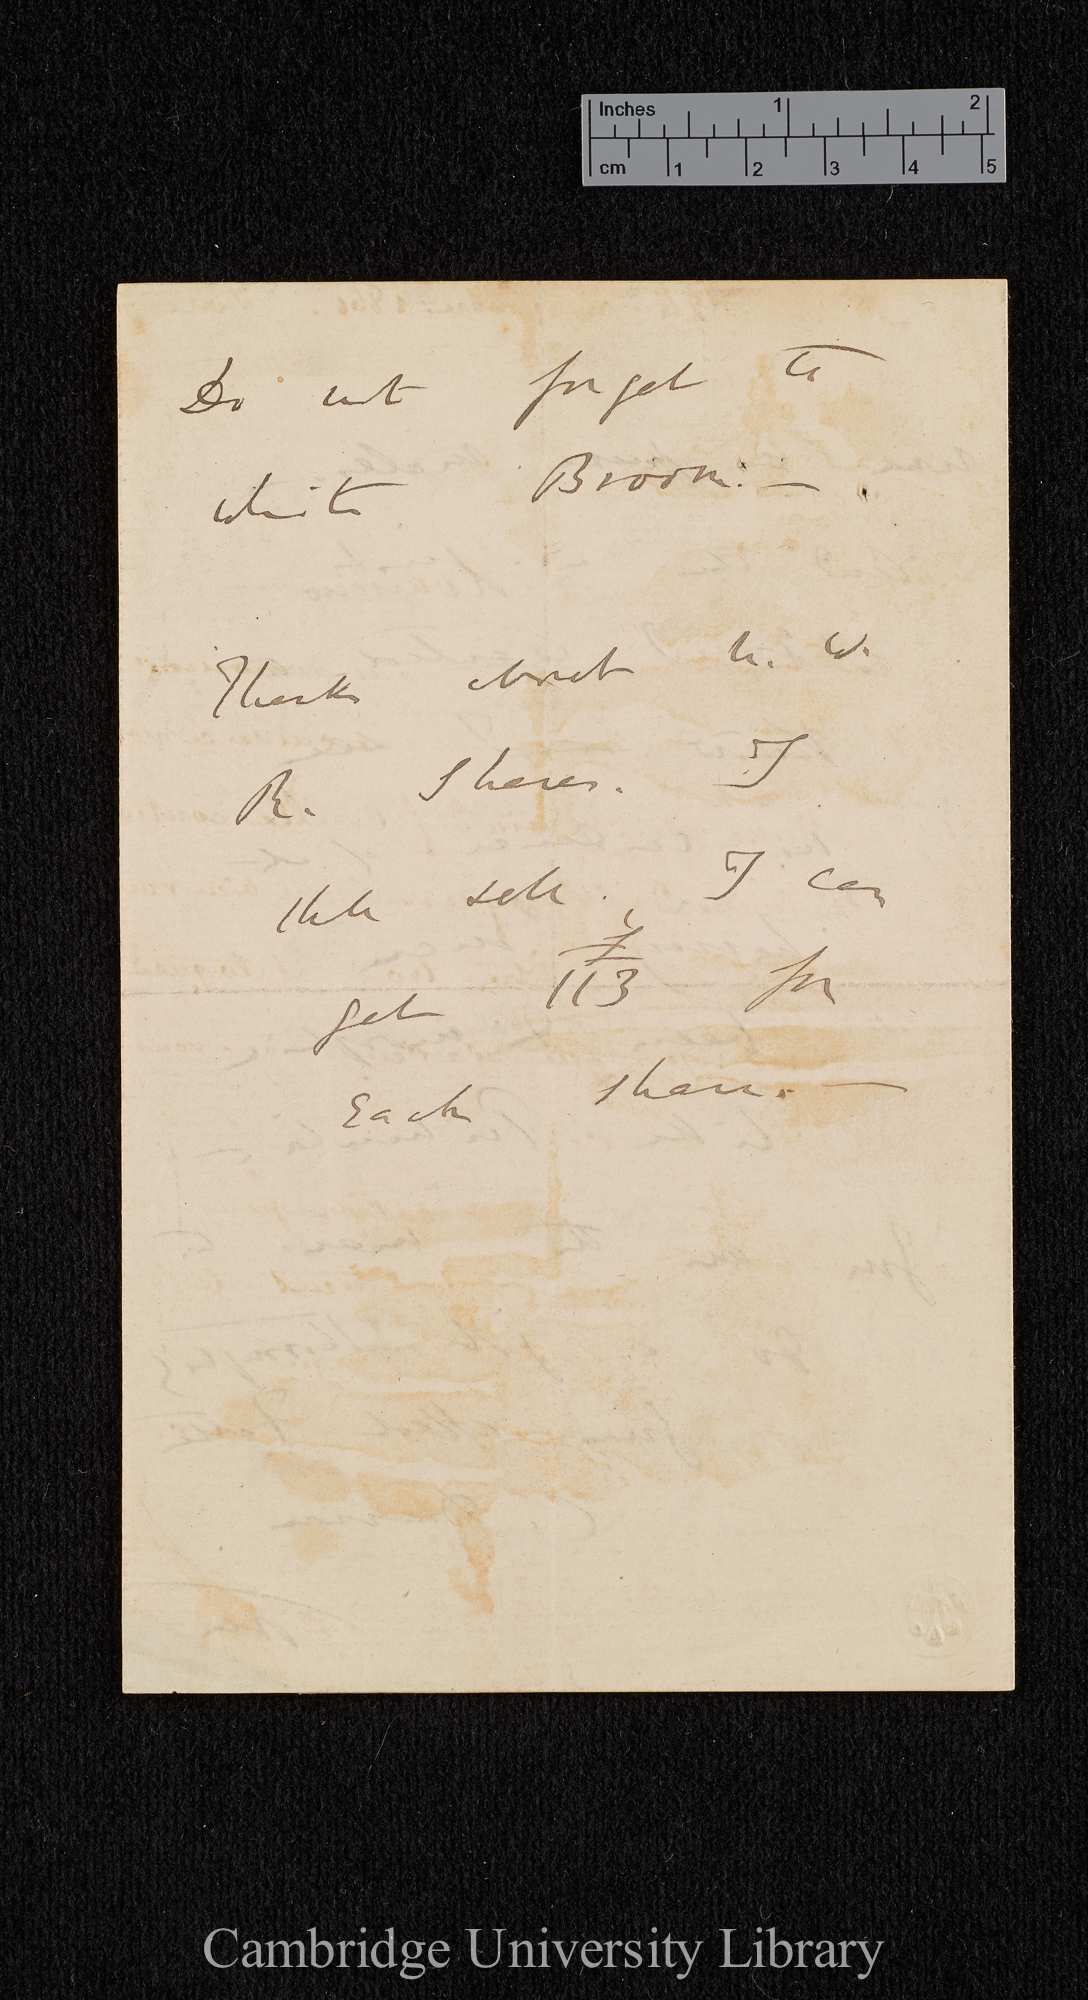 Inches 1 2
cm 1 2 3 4 5
Do not forget to
white Broom. —
Thanks about N. W.
R. Shares. I
shll sell. I can
£
get 113 for
each share. —
Cambridge University Library